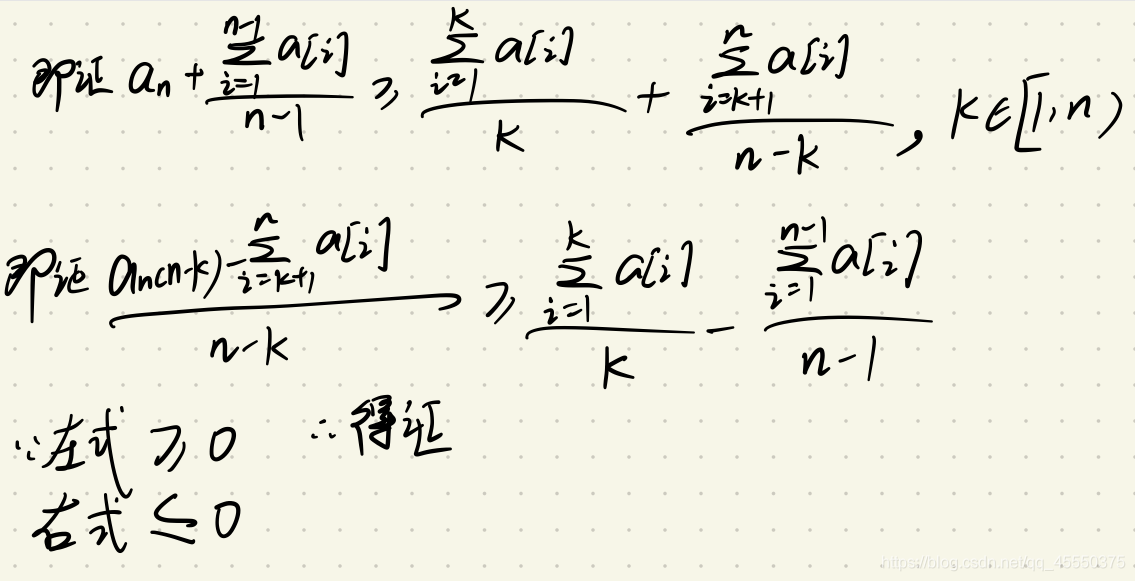 即证 aₙ + (∑_{i=1}^{n-1} a[i])/(n-1) ≥ (∑_{i=1}^{k} a[i])/k + (∑_{i=k+1}^{n} a[i])/(n-k) , k∈[1,n)
即证 (aₙ(n-k) - ∑_{i=k+1}^{n} a[i])/(n-k) ≥ (∑_{i=1}^{k} a[i])/k - (∑_{i=1}^{n-1} a[i])/(n-1)
∵左式 ≥ 0 ∴得证
右式 ≤ 0
https://blog.csdn.net/qq_45550375